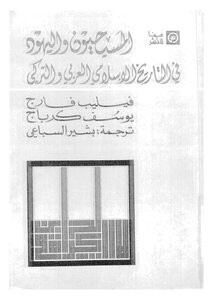 سينا
للنشر
المسيحيون واليهود
في التاريخ الإسلامي العربي والتركي
فيليب فارج
يوسف كرباج
ترجمة: بشير السباعي